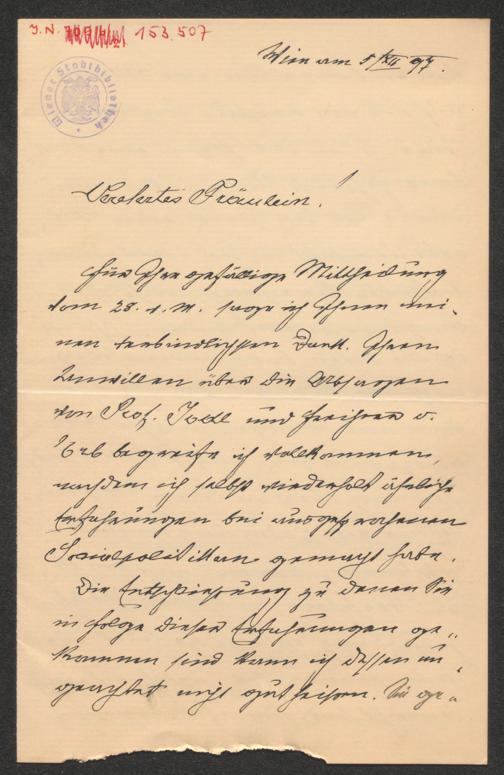 J.N. 153.507
Wiener Stadtbibliothek
Wien am 5/XII 97.
Verehrtes Fräulein!
Für Ihre gefällige Mittheilung
vom 28. v. M. sage ich Ihnen mei-
nen verbindlichsten Dank. Ihren
Unwillen über die Absagen
von Prof. Jodl und Freiherr v.
begreife ich vollkommen,
nachdem ich selbst wiederholt ähnliche
Erfahrungen bei ausgesprochenen
Socialpolitikern gemacht habe.
Die Entschließung zu denen Sie
in folge dieser Erfahrungen ge-
kommen sind kann ich dessen un-
geachtet nicht gutheißen. Sie ge-